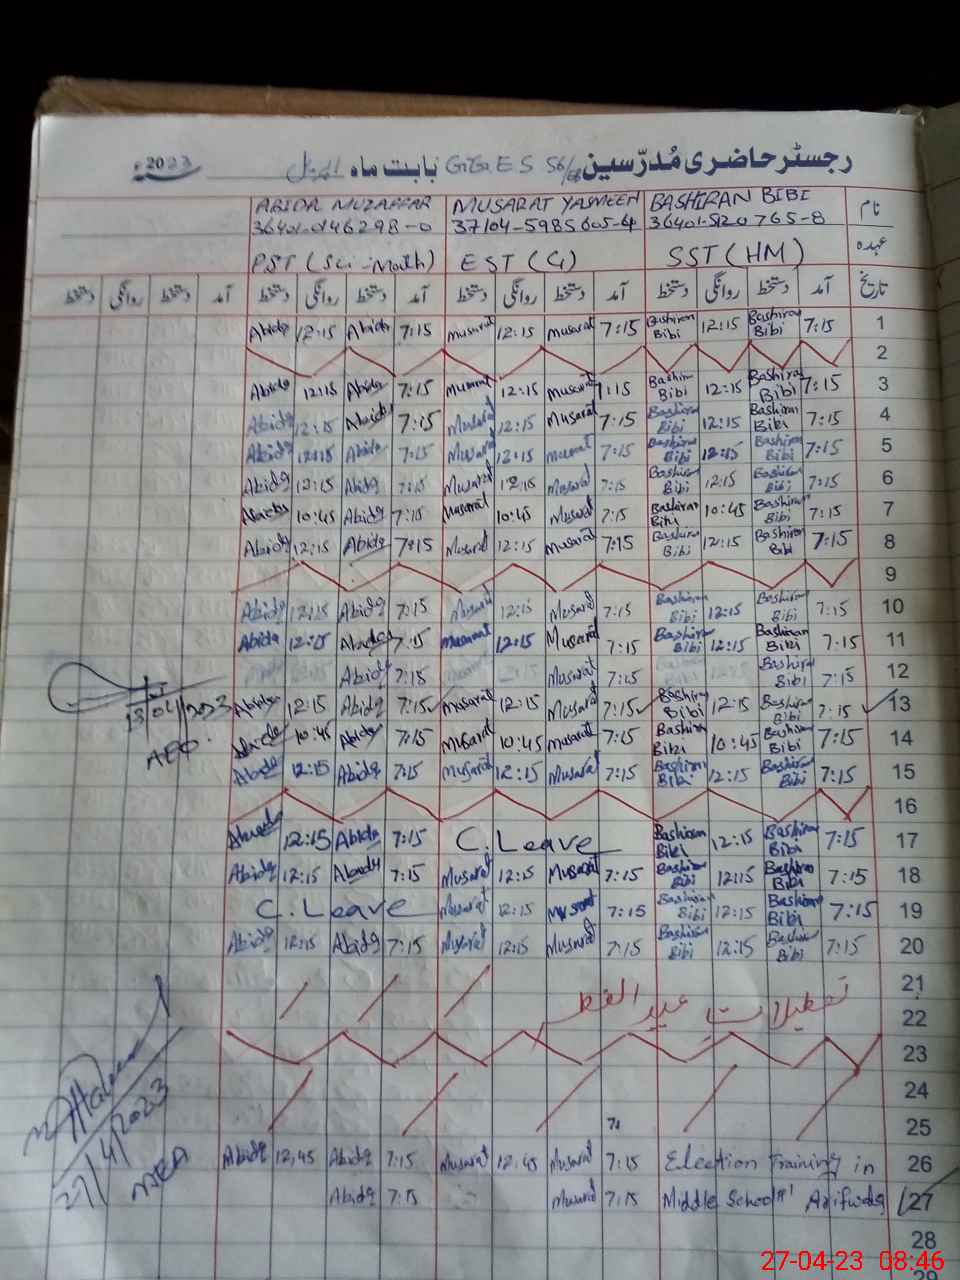 رجسٹر حاضری مُدرّسین G.G.E.S 56/ بابت ماہ اپریل 2023ء
نام BASHIRAN BIBI MUSARAT YASMEEN ABIDA MUZAFFAR
36401-5120765-8 37104-5985605-4 36401-0146298-0
عہدہ SST (HM) EST (G) PST (Sci-Math)
تاریخ آمد دستخط روانگی دستخط آمد دستخط روانگی دستخط آمد دستخط روانگی دستخط آمد دستخط روانگی دستخط
1 7:15 Bashiran Bibi 12:15 Bashiran Bibi 7:15 Musarat 12:15 Musarat 7:15 Abida 12:15 Abida
2
3 7:15 Bashiran Bibi 12:15 Bashiran Bibi 7:15 Musarat 12:15 Musarat 7:15 Abida 12:15 Abida
4 7:15 Bashiran Bibi 12:15 Bashiran Bibi 7:15 Musarat 12:15 Musarat 7:15 Abida 12:15 Abida
5 7:15 Bashiran Bibi 12:15 Bashiran Bibi 7:15 Musarat 12:15 Musarat 7:15 Abida 12:15 Abida
6 7:15 Bashiran Bibi 12:15 Bashiran Bibi 7:15 Musarat 12:15 Musarat 7:15 Abida 12:15 Abida
7 7:15 Bashiran Bibi 10:45 Bashiran Bibi 7:15 Musarat 10:45 Musarat 7:15 Abida 10:45 Abida
8 7:15 Bashiran Bibi 12:15 Bashiran Bibi 7:15 Musarat 12:15 Musarat 7:15 Abida 12:15 Abida
9
10 7:15 Bashiran Bibi 12:15 Bashiran Bibi 7:15 Musarat 12:15 Musarat 7:15 Abida 12:15 Abida
11 7:15 Bashiran Bibi 12:15 Bashiran Bibi 7:15 Musarat 12:15 Musarat 7:15 Abida 12:15 Abida
12 7:15 Bashiran Bibi 7:15 Musarat 7:15 Abida
13 7:15 Bashiran Bibi 12:15 Bashiran Bibi 7:15 Musarat 12:15 Musarat 7:15 Abida 12:15 Abida
13/04/2023
AEO
14 7:15 Bashiran Bibi 10:45 Bashiran Bibi 7:15 Musarat 10:45 Musarat 7:15 Abida 10:45 Abida
15 7:15 Bashiran Bibi 12:15 Bashiran Bibi 7:15 Musarat 12:15 Musarat 7:15 Abida 12:15 Abida
16
17 7:15 Bashiran Bibi 12:15 Bashiran Bibi C. Leave 7:15 Abida 12:15 Abida
18 7:15 Bashiran Bibi 12:15 Bashiran Bibi 7:15 Musarat 12:15 Musarat 7:15 Abida 12:15 Abida
19 7:15 Bashiran Bibi 12:15 Bashiran Bibi 7:15 Musarat 12:15 Musarat C. Leave
20 7:15 Bashiran Bibi 12:15 Bashiran Bibi 7:15 Musarat 12:15 Musarat 7:15 Abida 12:15 Abida
21
تعطیلات عید الفطر
22
23
24
25
26 Election Training in 7:15 Musarat 12:45 Musarat 7:15 Abida 12:45 Abida
27 Middle School Arifwala 7:15 Musarat 7:15 Abida
27/4/2023
MEA
28
29
27-04-23 08:46